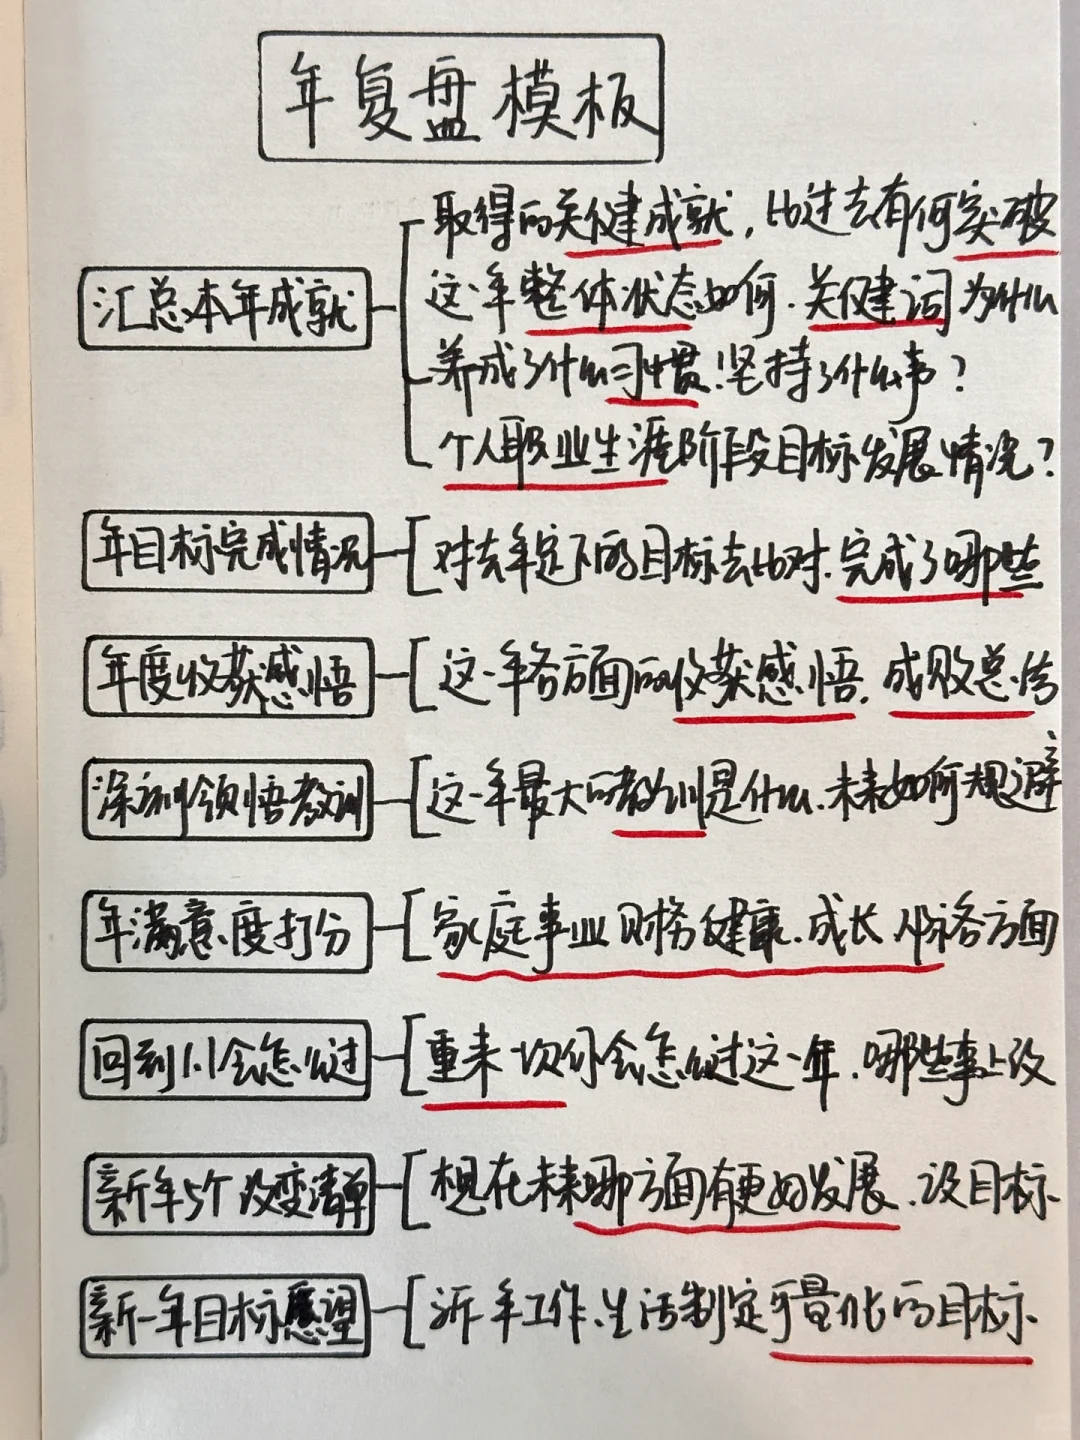 年复盘模板
汇总本年成就
取得的关健成就，比过去有何突破
这一年整体状态如何.关健词为什么
养成了什么习惯！坚持了什么事？
个人职业生涯阶段目标发展情况？
年目标完成情况
对去年定下的目标去比对.完成了哪些
年度收获感悟
这一年各方面的收获感悟.成败总结
深刻领悟教训
这一年最大的教训是什么、未来如何规避
年满意度打分
家庭事业财务健康.成长人脉各方面
回到1.1会怎么过
重来一次你会怎么过这一年.哪些事上改
新年5个改变清单
想在未来哪方面有更好发展.设目标
新一年目标愿望
新年工作、生活制定可量化的目标.